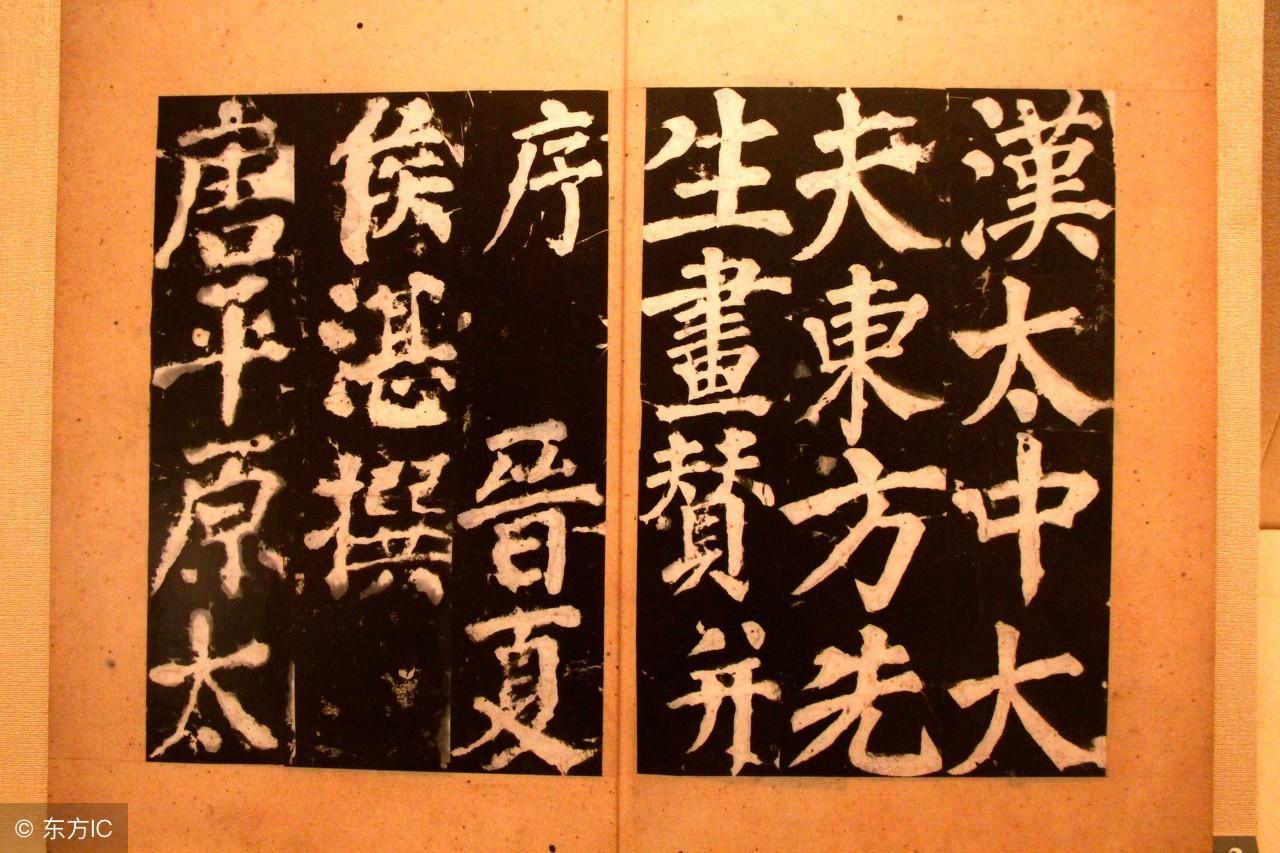 漢太中大
夫東方先
生畫贊并
序 晉夏
侯湛撰
唐平原太
© 东方IC